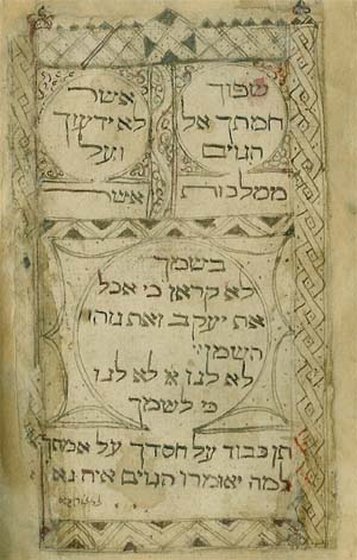 שפוך
חמתך אל
הגוים
אשר
לא ידעוך
ועל
ממלכות אשר
בשמך
לא קראו כי אכל
את יעקב ואת נוהו
השמו
לא לנו יי לא לנו
כי לשמך
תן כבוד על חסדך על אמתך
למה יאומרו הגוים איה נא